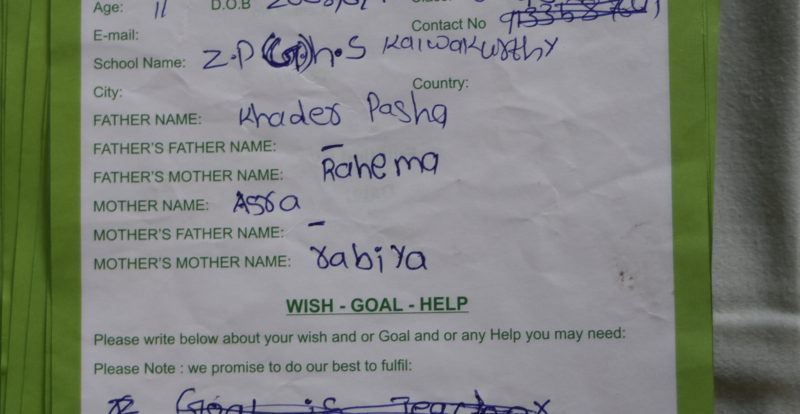 Age: 11 D.O.B
Contact No
E-mail:
School Name: Z.P(G).h.S Kalwakurthy
City: Country:
FATHER NAME: Khader Pasha
FATHER'S FATHER NAME: –
FATHER'S MOTHER NAME: Rahema
MOTHER NAME: Asra
MOTHER'S FATHER NAME: –
MOTHER'S MOTHER NAME: rabiya
WISH - GOAL - HELP
Please write below about your wish and or Goal and or any Help you may need:
Please Note : we promise to do our best to fulfil:
Goal is